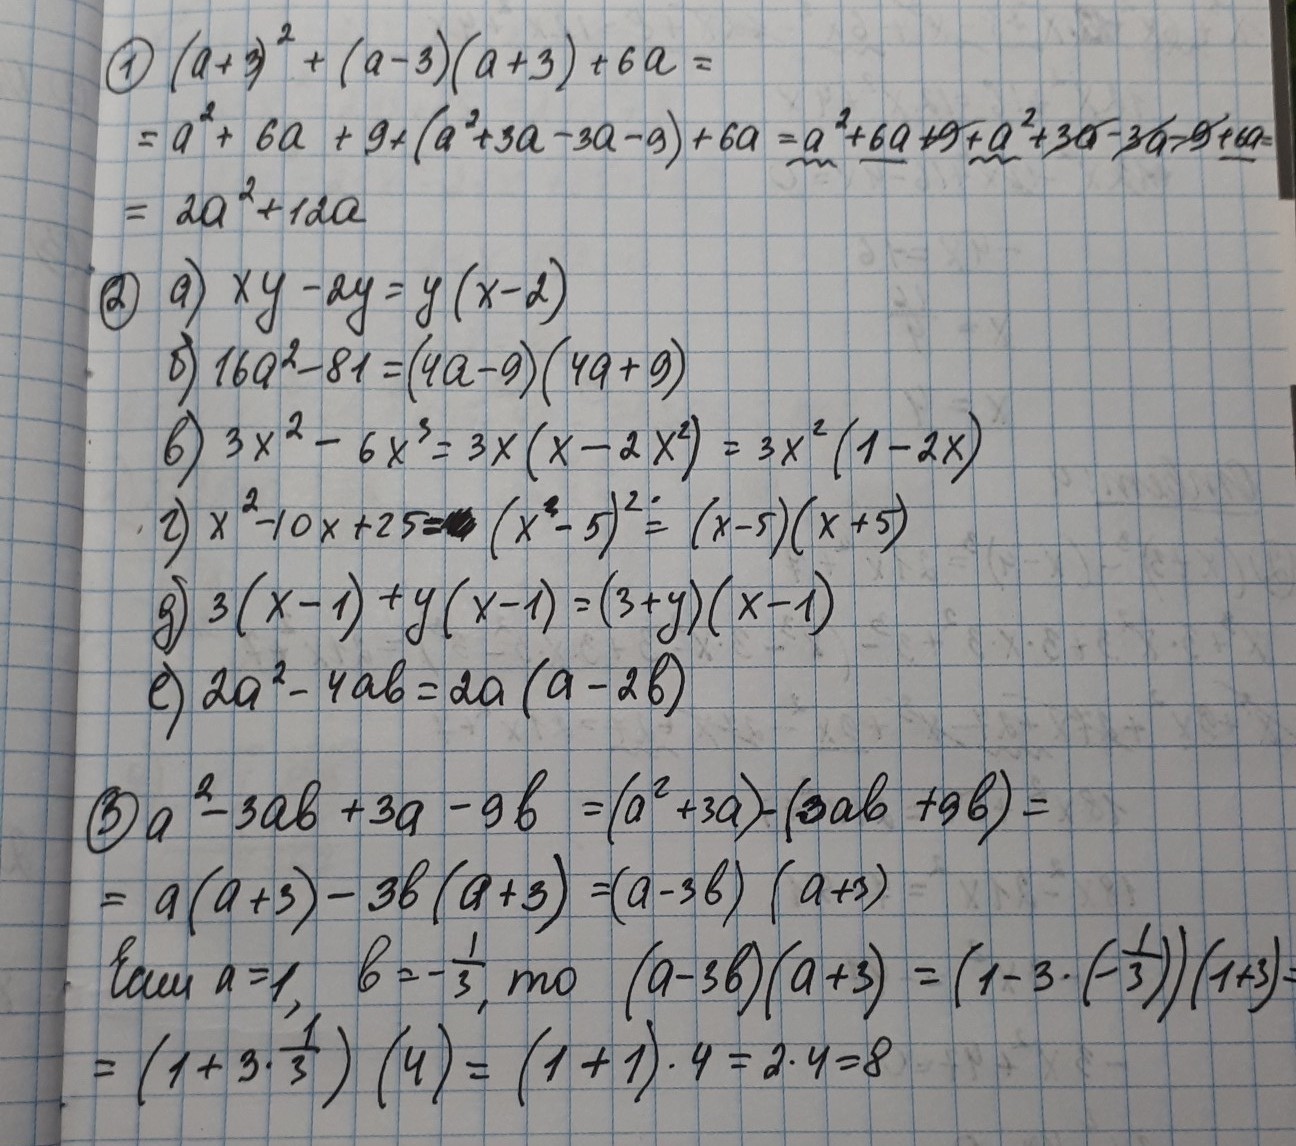 ① (a+3)² + (a-3)(a+3) + 6a =
= a² + 6a + 9 + (a²+3a-3a-9) + 6a = a²+6a+9+a²+3a-3a-9+6a=
= 2a²+12a
② а) xy - 2y = y(x-2)
б) 16a²-81 = (4a-9)(4a+9)
в) 3x² - 6x³ = 3x(x-2x²) = 3x²(1-2x)
г) x²-10x+25= (x²-5)² = (x-5)(x+5)
д) 3(x-1)+y(x-1) = (3+y)(x-1)
е) 2a²-4ab = 2a(a-2b)
③ a²-3ab+3a-9b = (a²+3a)-(3ab+9b) =
= a(a+3)-3b(a+3) = (a-3b)(a+3)
Если a=1, b=-1/3, то (a-3b)(a+3) = (1-3·(-1/3))(1+3)=
= (1+3·1/3)(4) = (1+1)·4 = 2·4=8